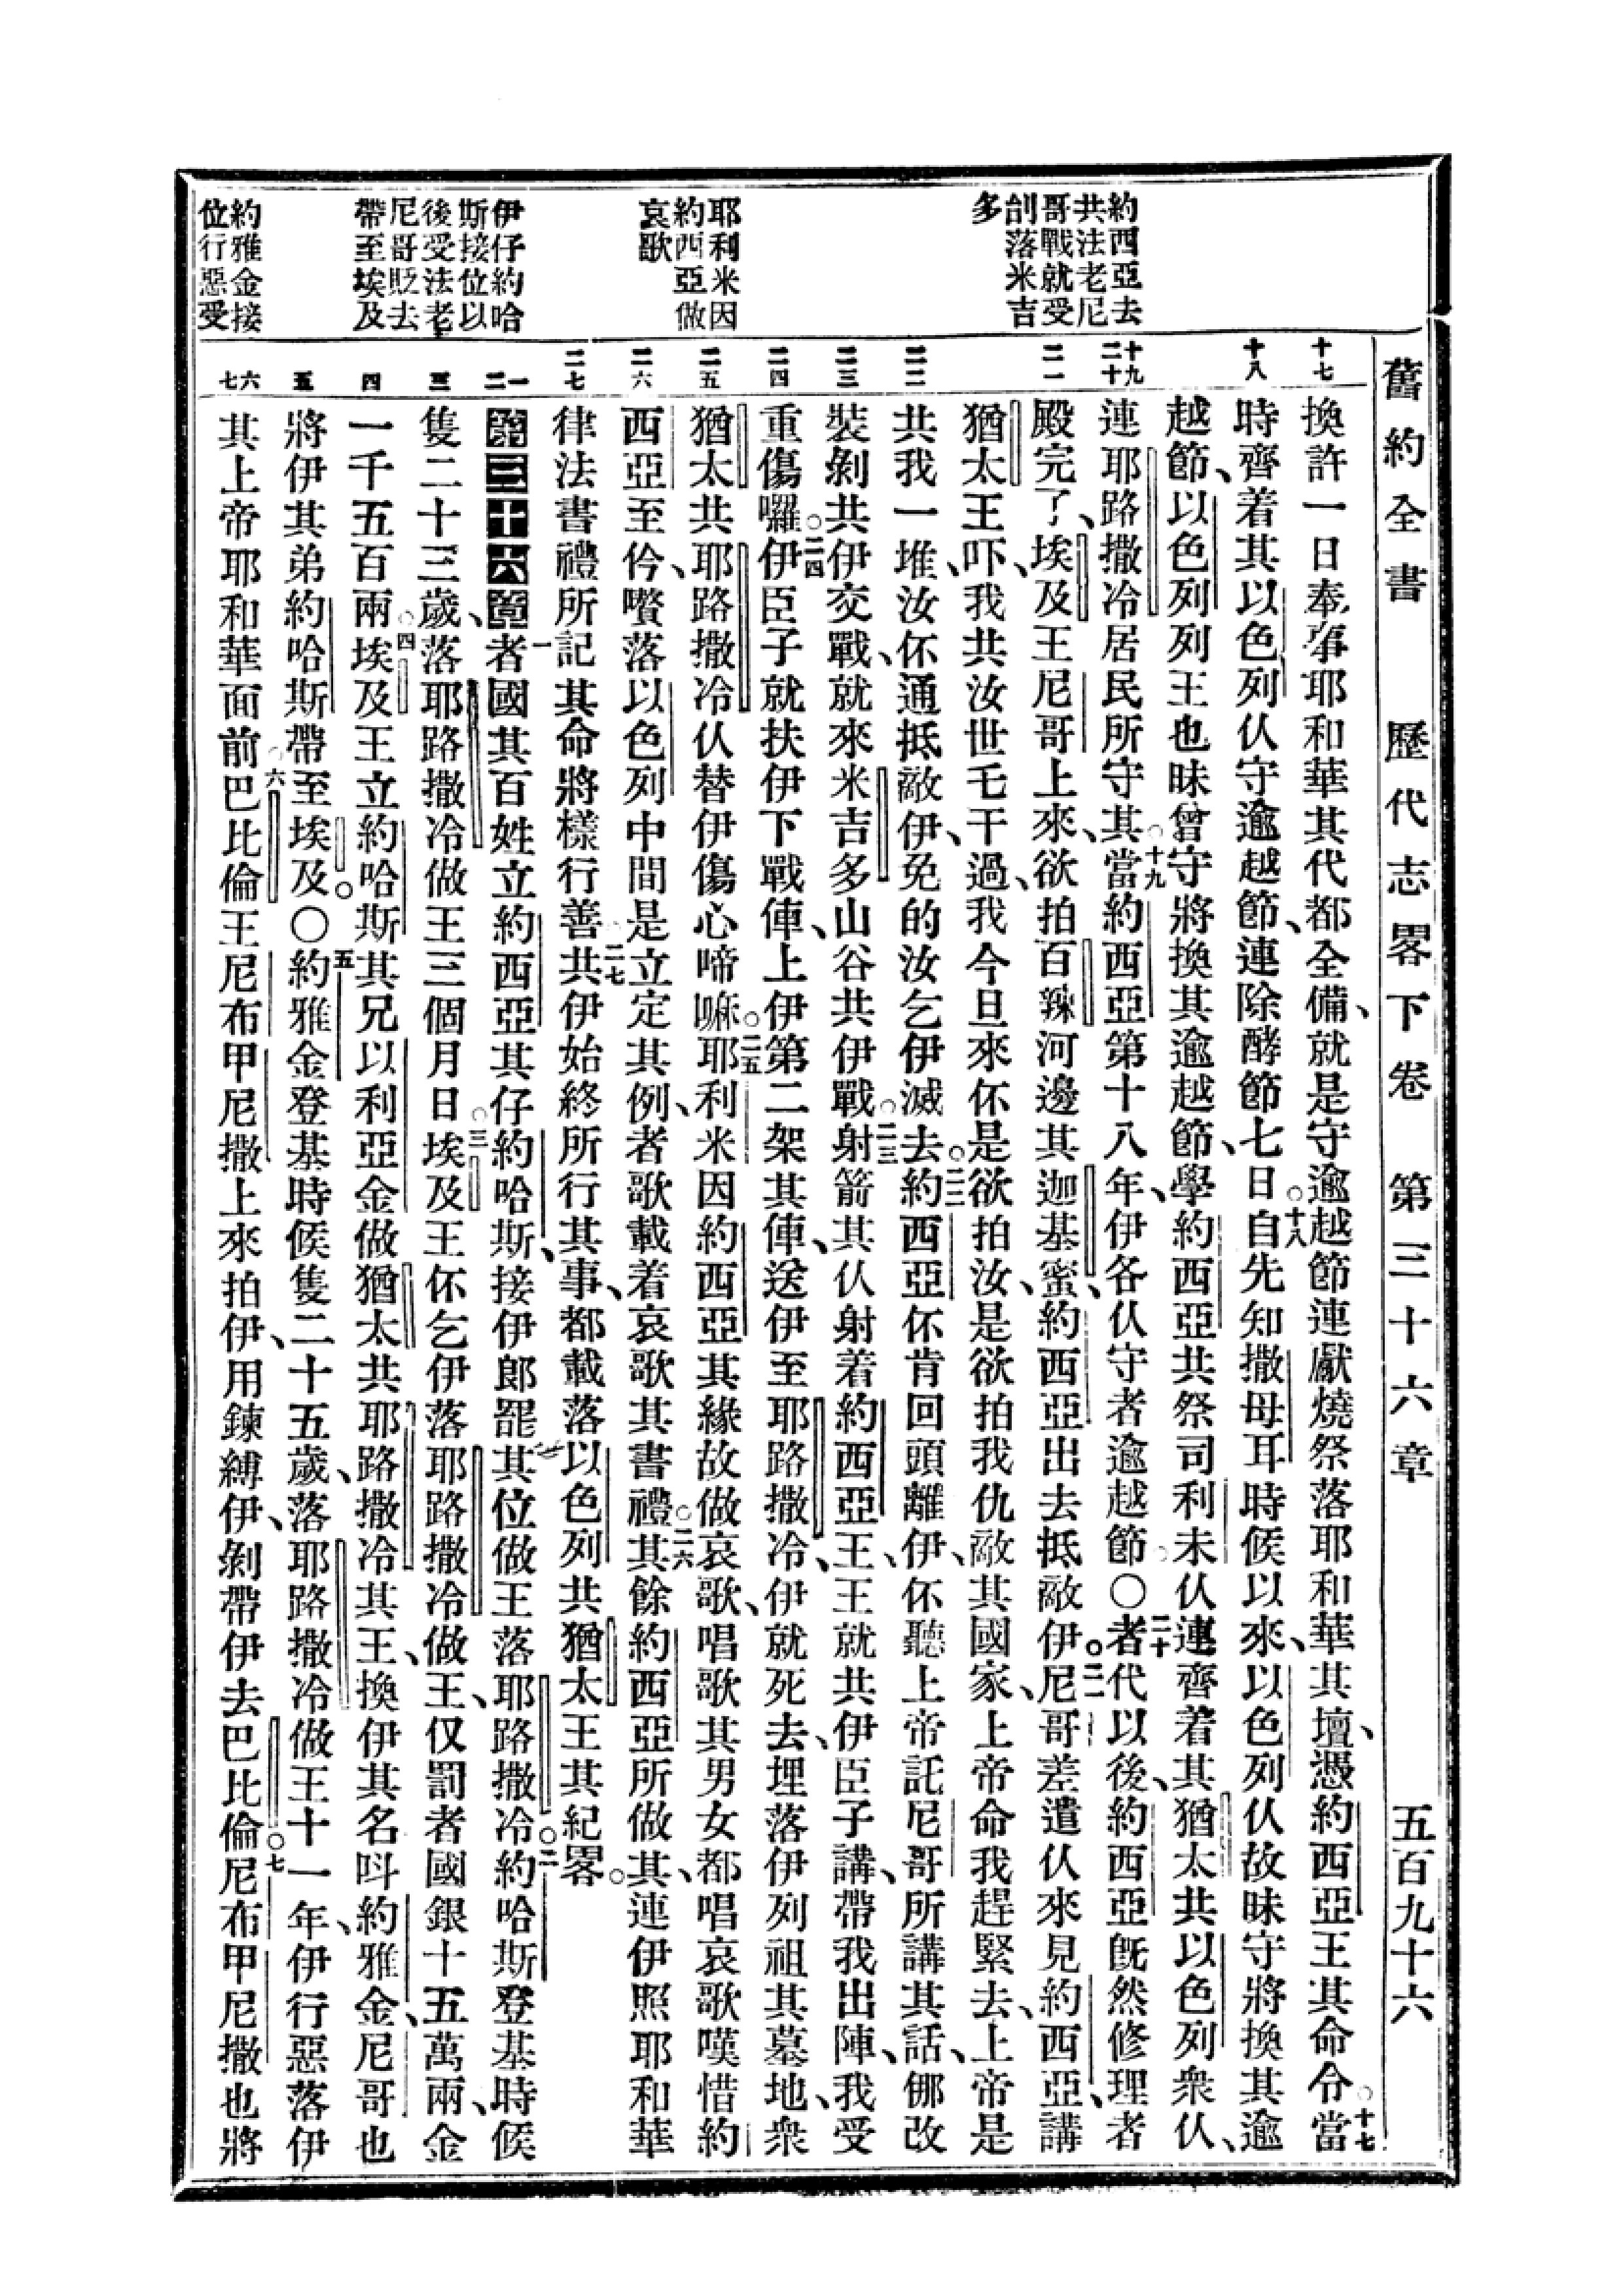 舊約全書 歷代志畧下卷 第三十六章 五百九十六
約西亞去
共法老尼
哥戰就受
創落米吉
多
耶利米因
約西亞做
哀歌
伊仔約哈
斯接位以
後受法老
尼哥貶去
帶至埃及
約雅金接
位行惡受
十七
十八
十九
二十
二一
二二
二三
二四
二五
二六
二七
一
二
三
四
五
六
七
換許一日奉事耶和華其代都全備、就是守逾越節連獻燒祭落耶和華其壇、憑約西亞王其命令。十七當
時齊着其以色列仈守逾越節、連除酵節七日。十八自先知撒母耳時候以來、以色列仈故昧守將換其逾
越節、以色列列王也昧曾守將換其逾越節、學約西亞共祭司利未仈連齊着其猶太共以色列衆仈、
連耶路撒冷居民所守其。十九當約西亞第十八年、伊各仈守者逾越節。〇二十者代以後、約西亞旣然修理者
殿完了、埃及王尼哥上來、欲拍百辣河邊其迦基蜜、約西亞出去抵敵伊。二一尼哥差遣仈來見約西亞、講
猶太王吓、我共汝世乇干過、我今旦來伓是欲拍汝、是欲拍我仇敵其國家、上帝命我趕緊去、上帝是
共我一堆、汝伓通抵敵伊、免的汝乞伊滅去。二二約西亞伓肯回頭離伊、伓聽上帝託尼哥所講其話、倻改
裝剝共伊交戰、就來米吉多山谷共伊戰。二三射箭其仈射着約西亞王、王就共伊臣子講、帶我出陣、我受
重傷囉。二四伊臣子就扶伊下戰俥、上伊第二架其俥、送伊至耶路撒冷、伊就死去、埋落伊列祖其墓地、衆
猶太共耶路撒冷仈替伊傷心啼嘛。二五耶利米因約西亞其緣故做哀歌、唱歌其男女都唱哀歌嘆惜約
西亞至仱、囋落以色列中間是立定其例、者歌載着哀歌其書禮。二六其餘約西亞所做其、連伊照耶和華
律法書禮所記其命將樣行善、二七共伊始終所行其事、都載落以色列共猶太王其紀畧。
第三十六章 一者國其百姓立約西亞其仔約哈斯、接伊郎罷其位做王落耶路撒冷。二約哈斯登基時候
隻二十三歲、落耶路撒冷做王三個月日。三埃及王伓乞伊落耶路撒冷做王、仅罰者國銀十五萬兩、金
一千五百兩。四埃及王立約哈斯其兄以利亞金做猶太共耶路撒冷其王、換伊其名呌約雅金、尼哥也
將伊其弟約哈斯帶至埃及。〇五約雅金登基時候隻二十五歲、落耶路撒冷做王十一年、伊行惡落伊
其上帝耶和華面前。六巴比倫王尼布甲尼撒上來拍伊、用鍊縛伊、剝帶伊去巴比倫。七尼布甲尼撒也將